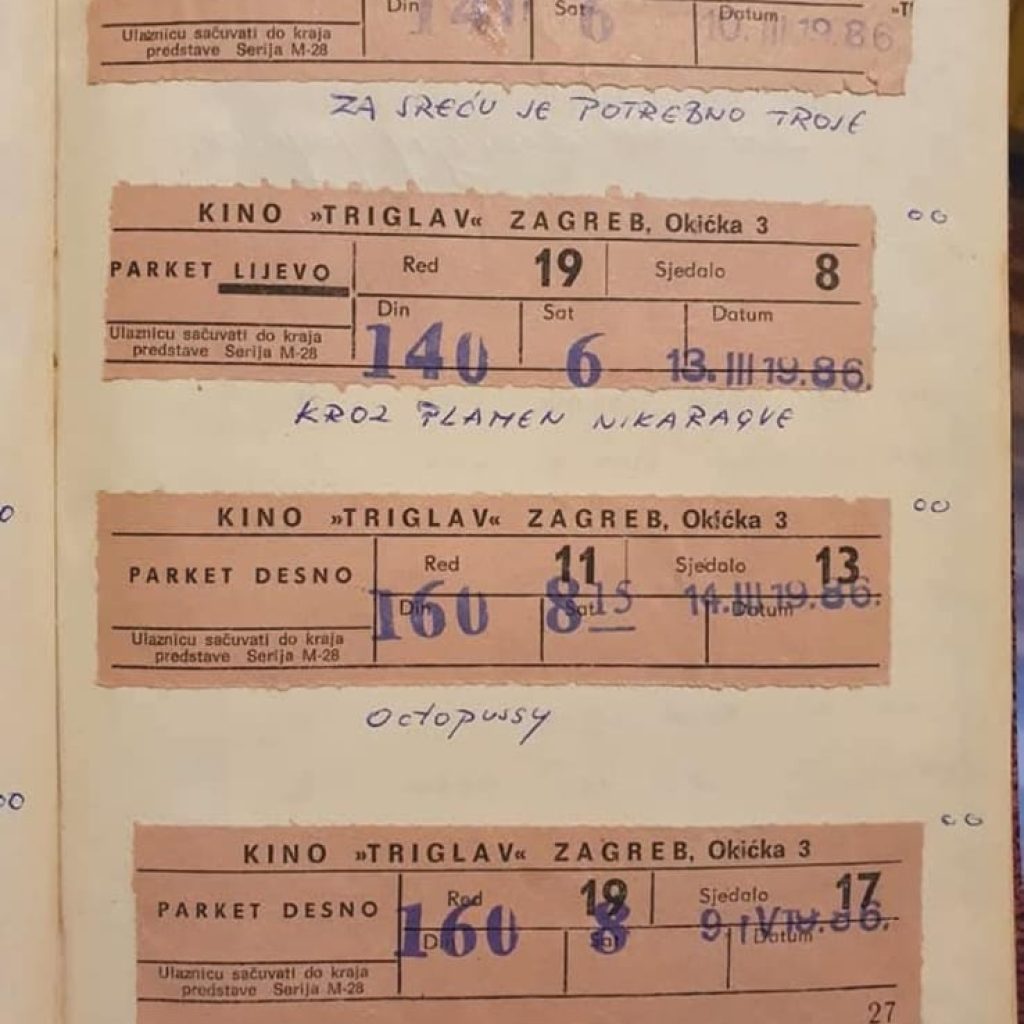 Din Sat Datum »T
140 6 10. III 19.86
Ulaznicu sačuvati do kraja
predstave Serija M-28
ZA SREĆU JE POTREBNO TROJE
KINO »TRIGLAV« ZAGREB, Okićka 3
oo
PARKET LIJEVO Red 19 Sjedalo 8
Din Sat Datum
Ulaznicu sačuvati do kraja
predstave Serija M-28
140 6 13. III 19.86.
KROZ PLAMEN NIKARAGVE
KINO »TRIGLAV« ZAGREB, Okićka 3
oo
PARKET DESNO Red 11 Sjedalo 13
Din Sat Datum
160 8 15 14. III 19.86.
Ulaznicu sačuvati do kraja
predstave Serija M-28
Octopussy
oo
KINO »TRIGLAV« ZAGREB, Okićka 3
PARKET DESNO Red 19 Sjedalo 17
Din Sat Datum
160 8 9. IV 19.86.
Ulaznicu sačuvati do kraja
predstave Serija M-28
27